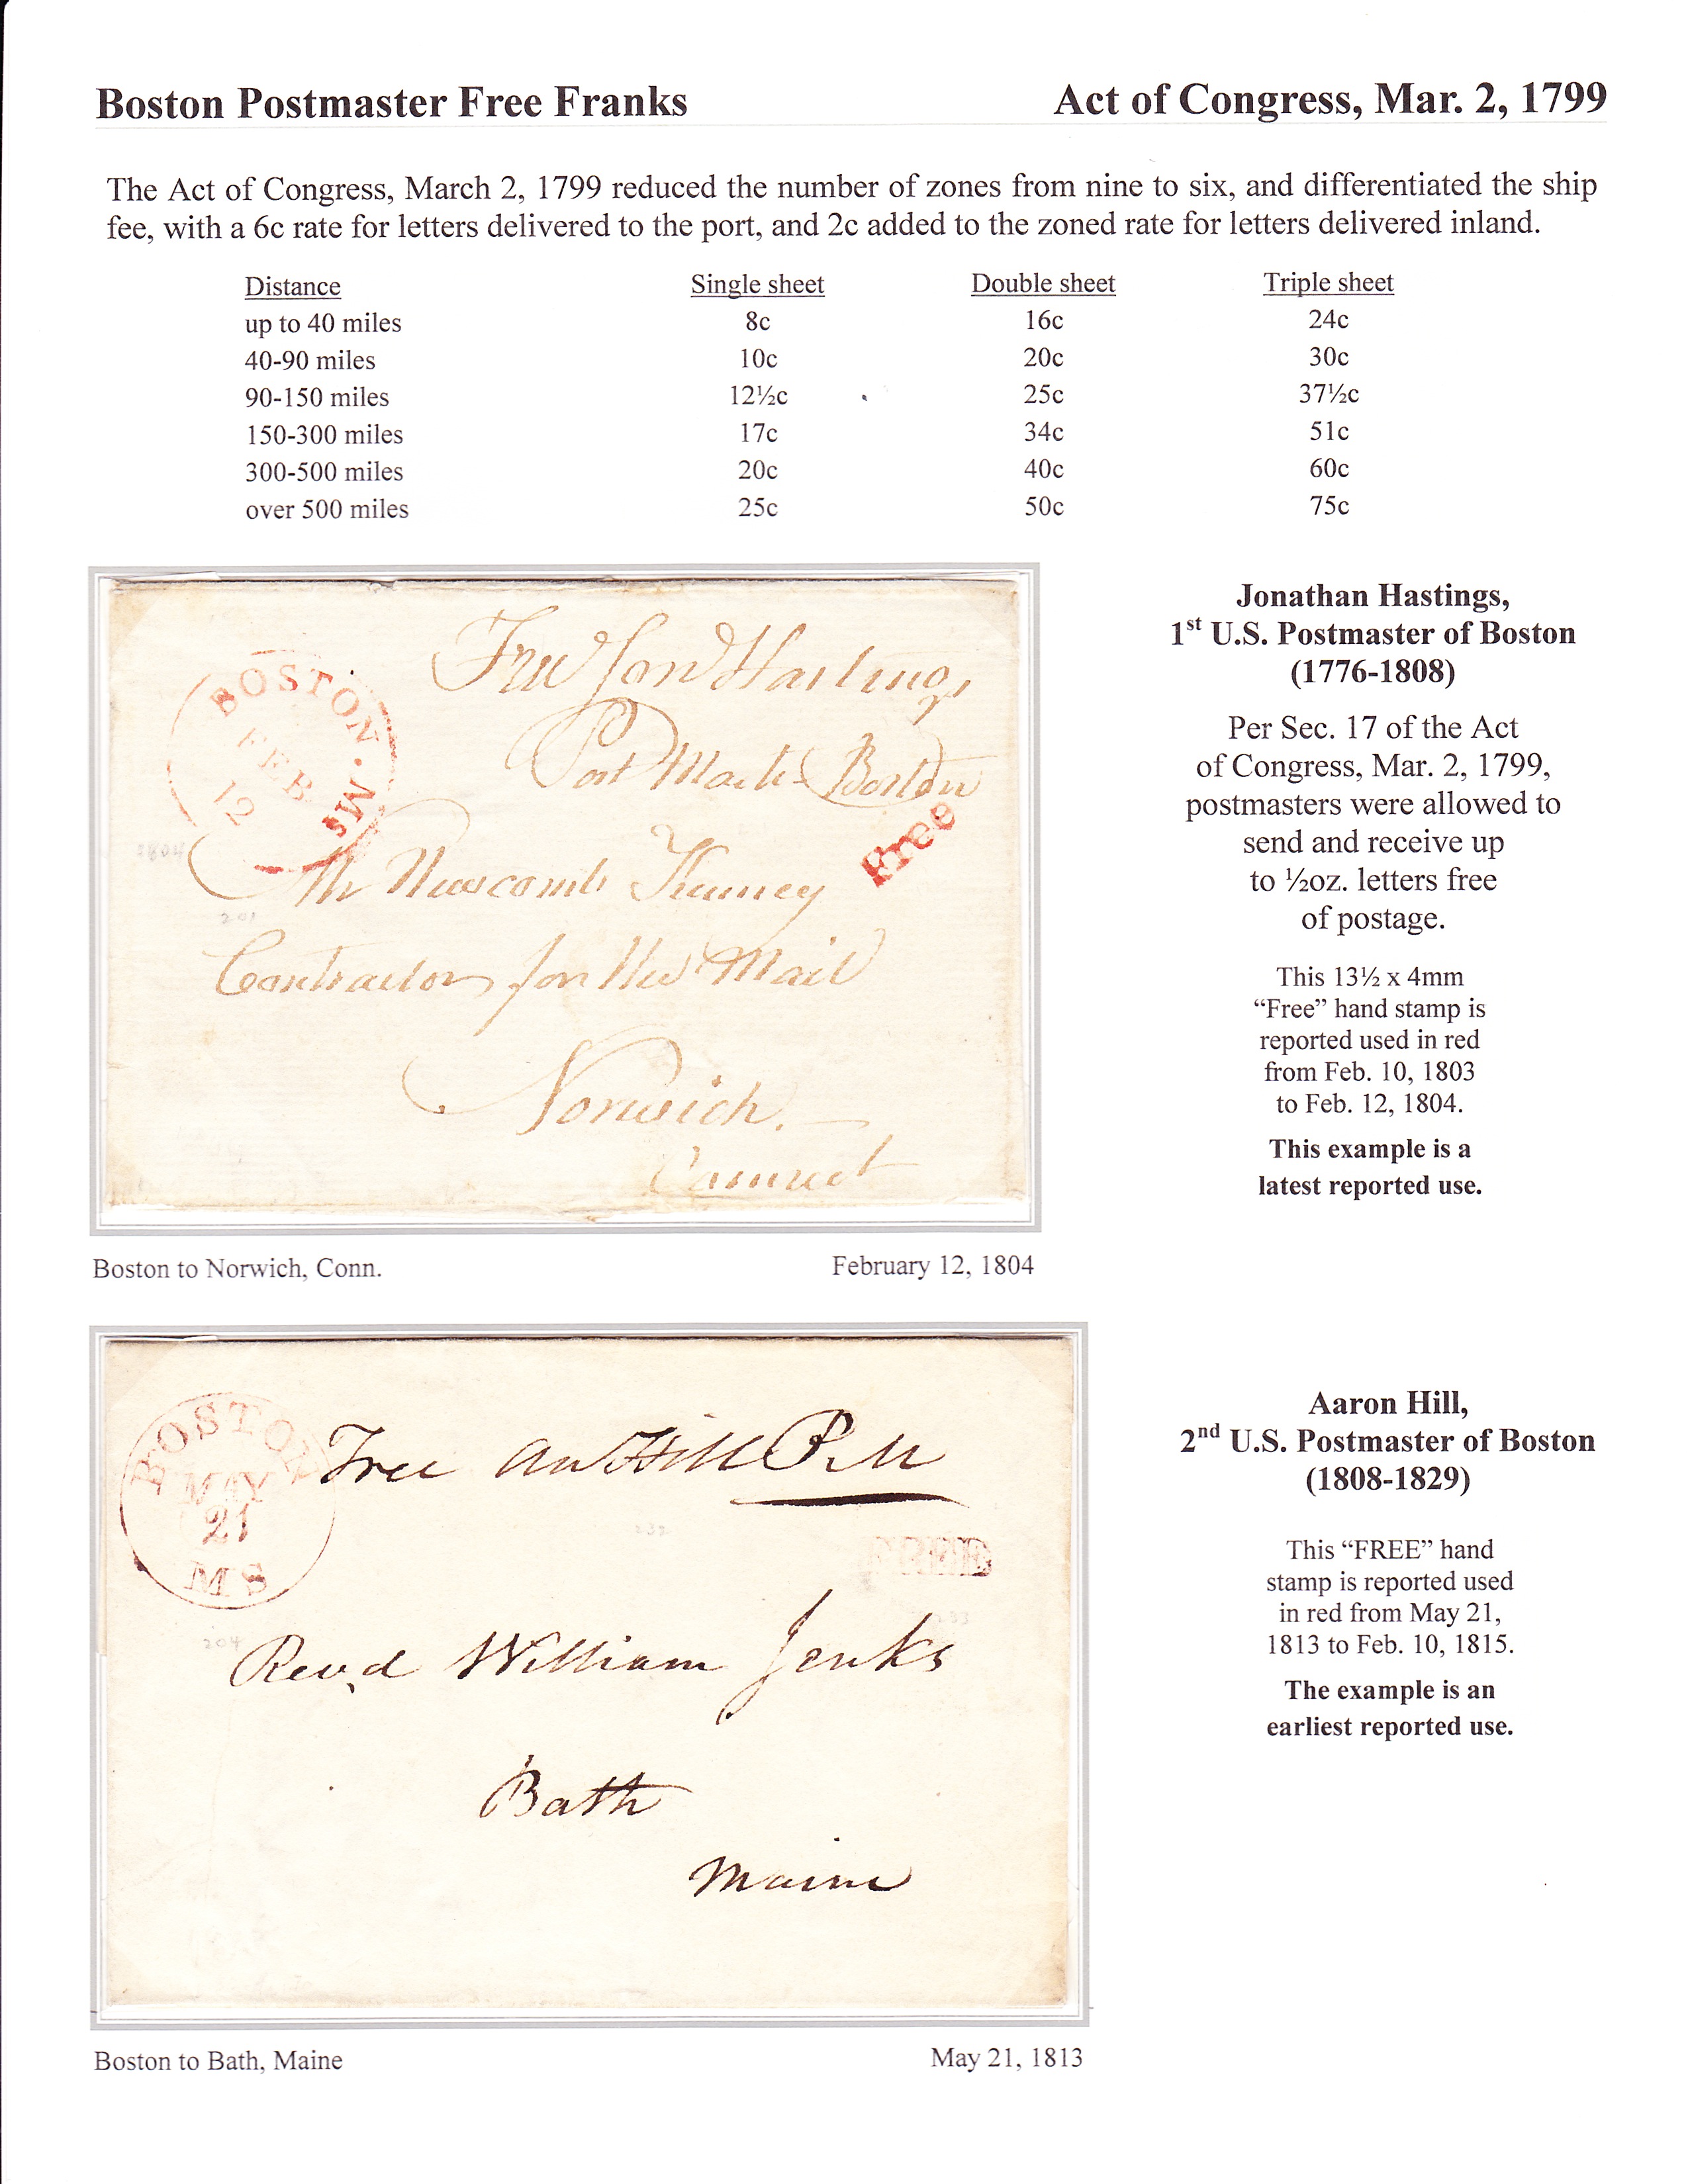 Boston Postmaster Free Franks Act of Congress, Mar. 2, 1799
The Act of Congress, March 2, 1799 reduced the number of zones from nine to six, and differentiated the ship
fee, with a 6c rate for letters delivered to the port, and 2c added to the zoned rate for letters delivered inland.
Distance Single sheet Double sheet Triple sheet
up to 40 miles 8c 16c 24c
40-90 miles 10c 20c 30c
90-150 miles 12½c 25c 37½c
150-300 miles 17c 34c 51c
300-500 miles 20c 40c 60c
over 500 miles 25c 50c 75c
Free Jon Hastings
Post Mast Boston
BOSTON. MS
FEB
12
Free
1804
Mr Newcomb Kinney
201
Contractor for the Mail
Norwich.
Connect
Jonathan Hastings,
1st U.S. Postmaster of Boston
(1776-1808)
Per Sec. 17 of the Act
of Congress, Mar. 2, 1799,
postmasters were allowed to
send and receive up
to ½oz. letters free
of postage.
This 13½ x 4mm
“Free” hand stamp is
reported used in red
from Feb. 10, 1803
to Feb. 12, 1804.
This example is a
latest reported use.
Boston to Norwich, Conn. February 12, 1804
BOSTON
MAY
21
MS
Free An Hill P.M
232
FREE
233
204
Revd William Jenks
Bath
Maine
Aaron Hill,
2nd U.S. Postmaster of Boston
(1808-1829)
This “FREE” hand
stamp is reported used
in red from May 21,
1813 to Feb. 10, 1815.
The example is an
earliest reported use.
Boston to Bath, Maine May 21, 1813